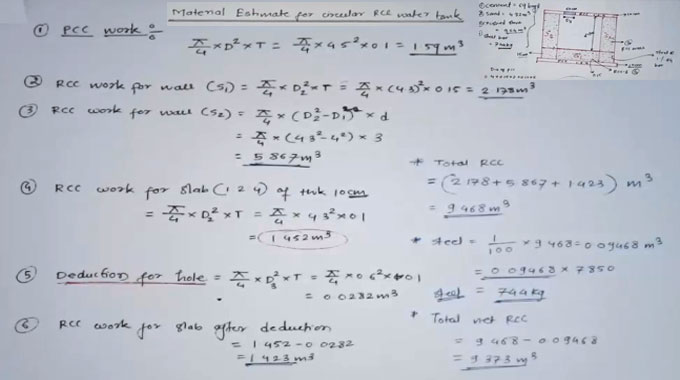 Material Estimate for circular RCC water tank
① PCC work :-
π/4 × D² × T = π/4 × 4 5² × 0 1 = 1 59 m³
② RCC work for wall (S₁) = π/4 × D₂² × T = π/4 × (4 3)² × 0 15 = 2 178 m³
③ RCC work for wall (S₂) = π/4 × (D₂² - D₁²) × d
= π/4 × (4 3² - 4²) × 3
= 5 867 m³
④ RCC work for slab (1 2 4) of thk 10cm
= π/4 × D₂² × T = π/4 × 4 3² × 0 1
= 1 452 m³
⑤ Deduction for hole = π/4 × D₃² × T = π/4 × 0 6² × 0 1
= 0 0282 m³
⑥ RCC work for slab after deduction
= 1 452 - 0 0282
= 1 423 m³
* Total RCC
= (2 178 + 5 867 + 1 423) m³
= 9 468 m³
* Steel = 1/100 × 9 468 = 0 09468 m³
= 0 09468 × 7850
Steel = 744 kg
* Total net RCC
= 9 468 - 0 09468
= 9 373 m³